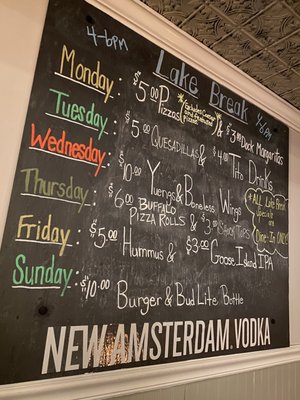 4-6pm
Lake Break
4-6pm
Monday: $5.00 Pizzas & $3.00 Dock Margaritas
Tuesday: $5.00 Quesadillas & $4.00 Tito Drinks
Wednesday: $10.00 Yuengs & Boneless Wings
Thursday: $6.00 Buffalo Pizza Rolls & $3.00
Friday: $5.00 Hummus & $3.00 Goose Island IPA
Sunday: $10.00 Burger & Bud Lite Bottle
*ALL Lake Break
Specials are
Dine-In ONLY!
NEW AMSTERDAM. VODKA